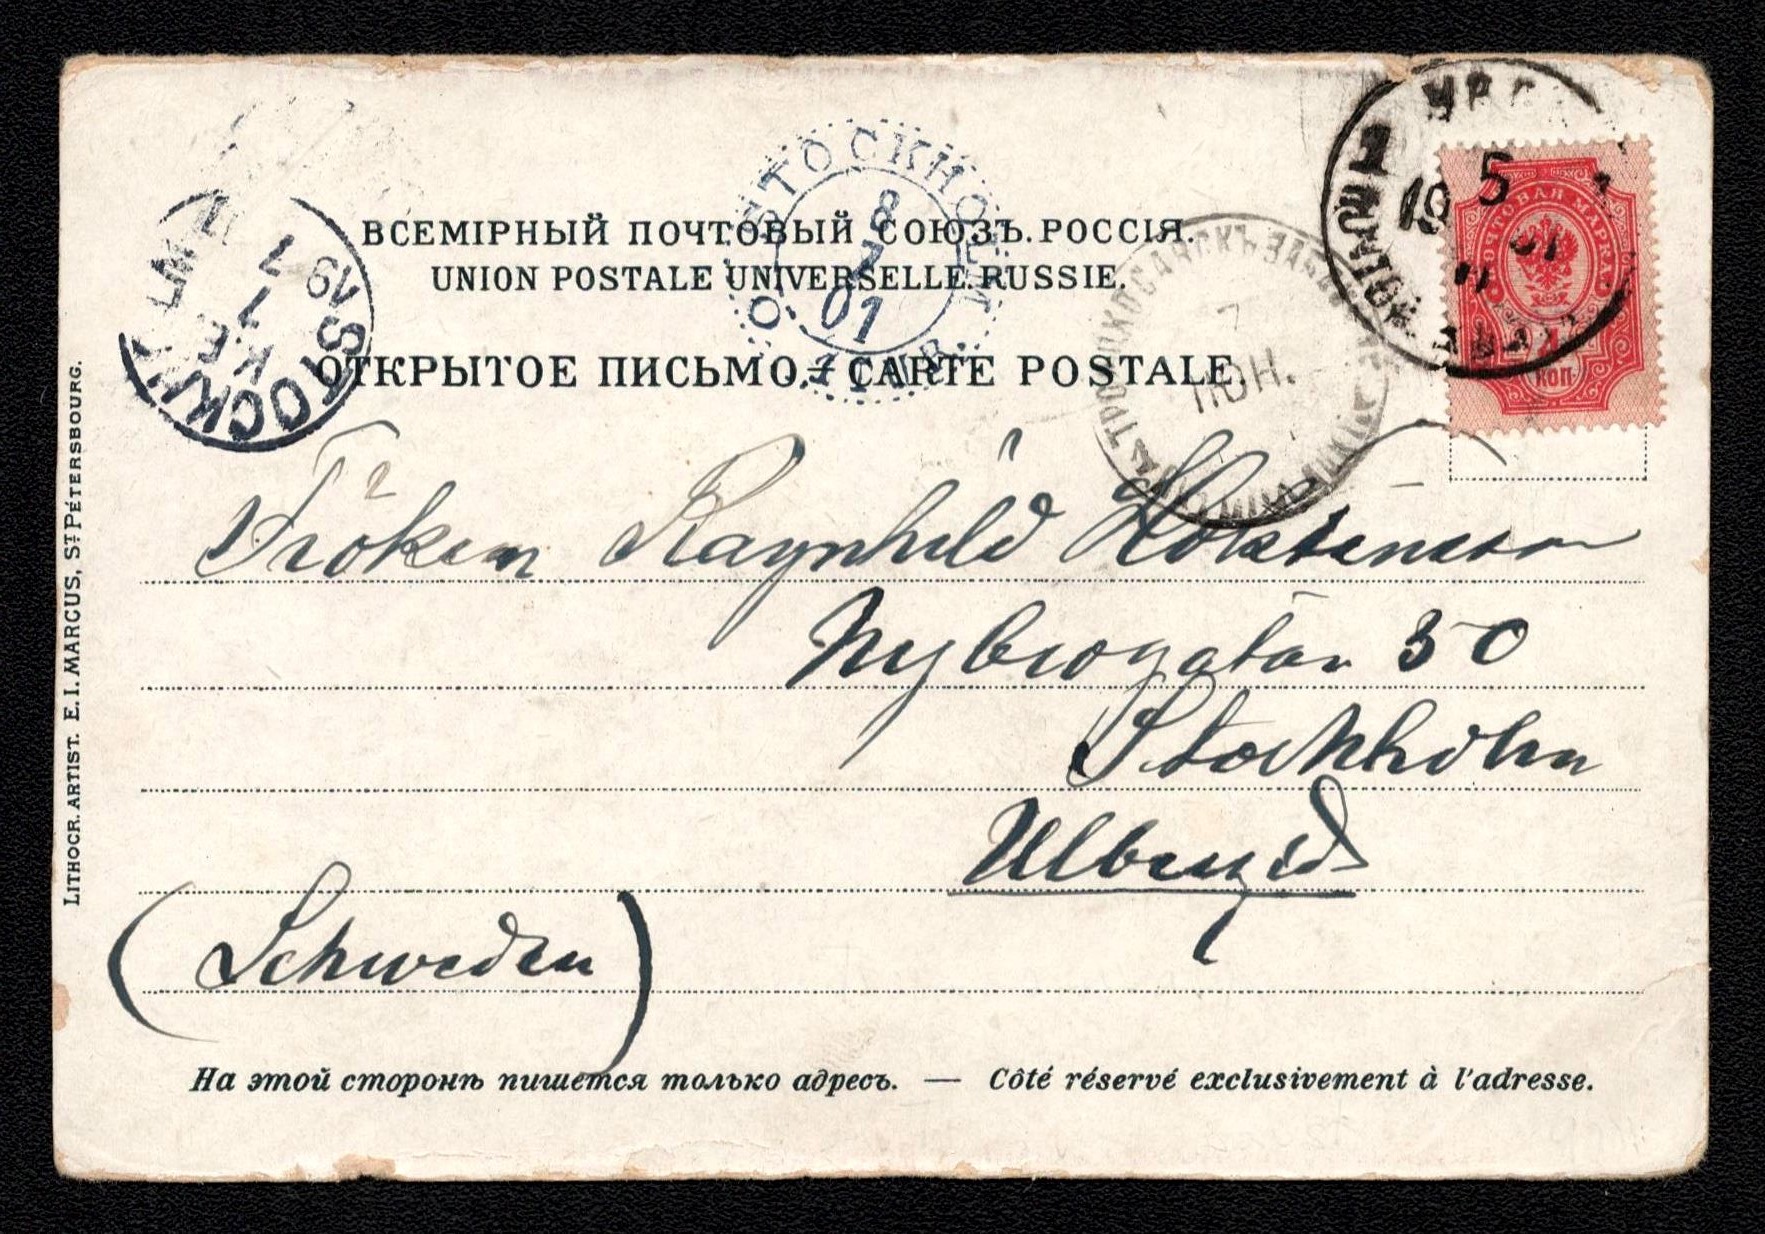 ВСЕМІРНЫЙ ПОЧТОВЫЙ СОЮЗЪ. РОССІЯ.
UNION POSTALE UNIVERSELLE. RUSSIE.
ОТКРЫТОЕ ПИСЬМО. — CARTE POSTALE.
8
7
01
7
ІЮН.
5
19 01
ПОЧТОВАЯ МАРКА
КОП.
STOCKHOLM
19 1
7
Fröken Ragnhild
Nybrogatan 30
Stockholm
(Schweden)
На этой сторонѣ пишется только адресъ. — Côté réservé exclusivement à l'adresse.
LITHOGR. ARTIST. E. I. MARCUS, ST. PÉTERSBOURG.